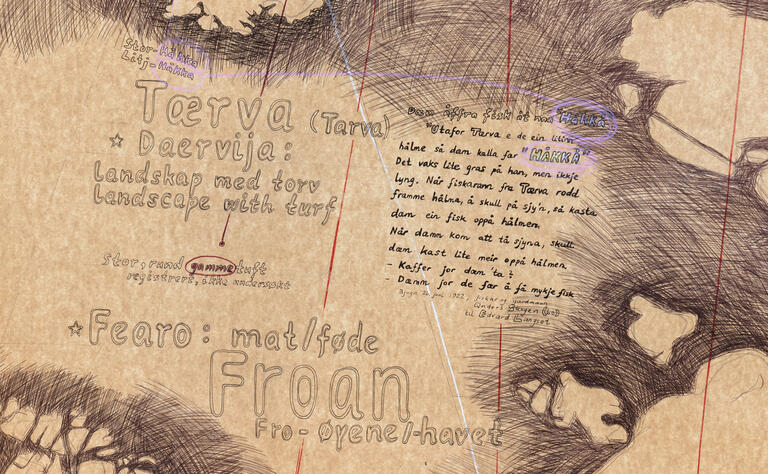 Stor-Håkka
Litj-Håkka
Tærva (Tarva)
☆ Daervija:
landskap med torv
landscape with turf
Stor, rund gamme tuft
registrert, ikke undersøkt
☆ Fearo: mat/føde
Froan
Fro-øyene/-havet
Dæm åffra fisk åt naa Håkkå
"Utafor Tærva e de ein liten
hålme så dam kalla far "HÅKKÅ"
Det vaks lite gras på han, men ikkje
lyng. Når fiskarann fra Tærva rodd
framme hålma, å skull på sjy'n, så kasta
dam ein fisk oppå hålmen.
Når damn kom att tå sjyna, skull
dæm kast lite meir oppå hålmen.
- Kaffer jor dæm 'ta?
- Dæmm jor de før å få mykje fisk
til Edvard